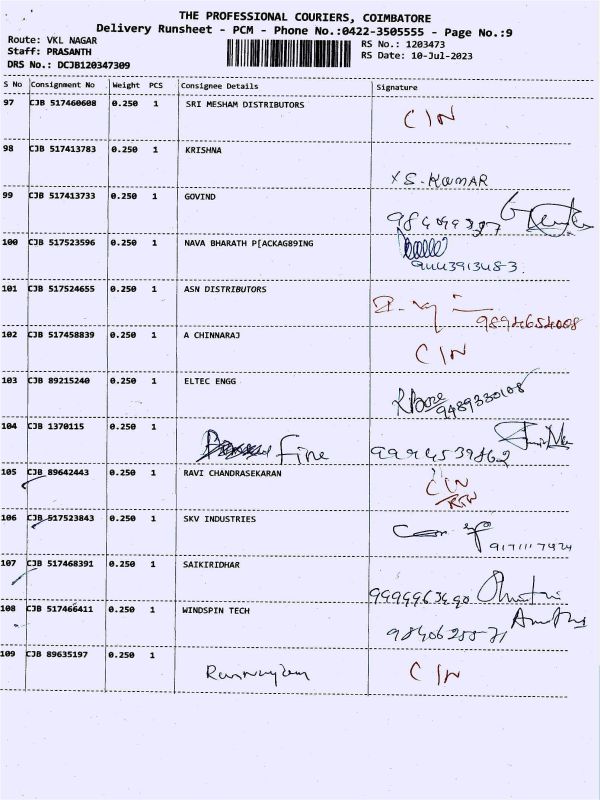 THE PROFESSIONAL COURIERS, COIMBATORE
Delivery Runsheet - PCM - Phone No.:0422-3505555 - Page No.:9
Route: VKL NAGAR
RS No.: 1203473
Staff: PRASANTH
RS Date: 10-Jul-2023
DRS No.: DCJB120347309
S No Consignment No Weight PCS Consignee Details Signature
97 CJB 517460608 0.250 1 SRI MESHAM DISTRIBUTORS CIN
98 CJB 517413783 0.250 1 KRISHNA
XS.KUMAR
99 CJB 517413733 0.250 1 GOVIND
100 CJB 517523596 0.250 1 NAVA BHARATH P[ACKAG89ING
9443913483.
101 CJB 517524655 0.250 1 ASN DISTRIBUTORS
9894654008
102 CJB 517458839 0.250 1 A CHINNARAJ CIN
103 CJB 89215240 0.250 1 ELTEC ENGG
9489330108
104 CJB 1370115 0.250 1
Fine 9994539862
105 CJB 89642443 0.250 1 RAVI CHANDRASEKARAN CIN
106 CJB 517523843 0.250 1 SKV INDUSTRIES
107 CJB 517468391 0.250 1 SAIKIRIDHAR
108 CJB 517466411 0.250 1 WINDSPIN TECH
109 CJB 89635197 0.250 1 CIN